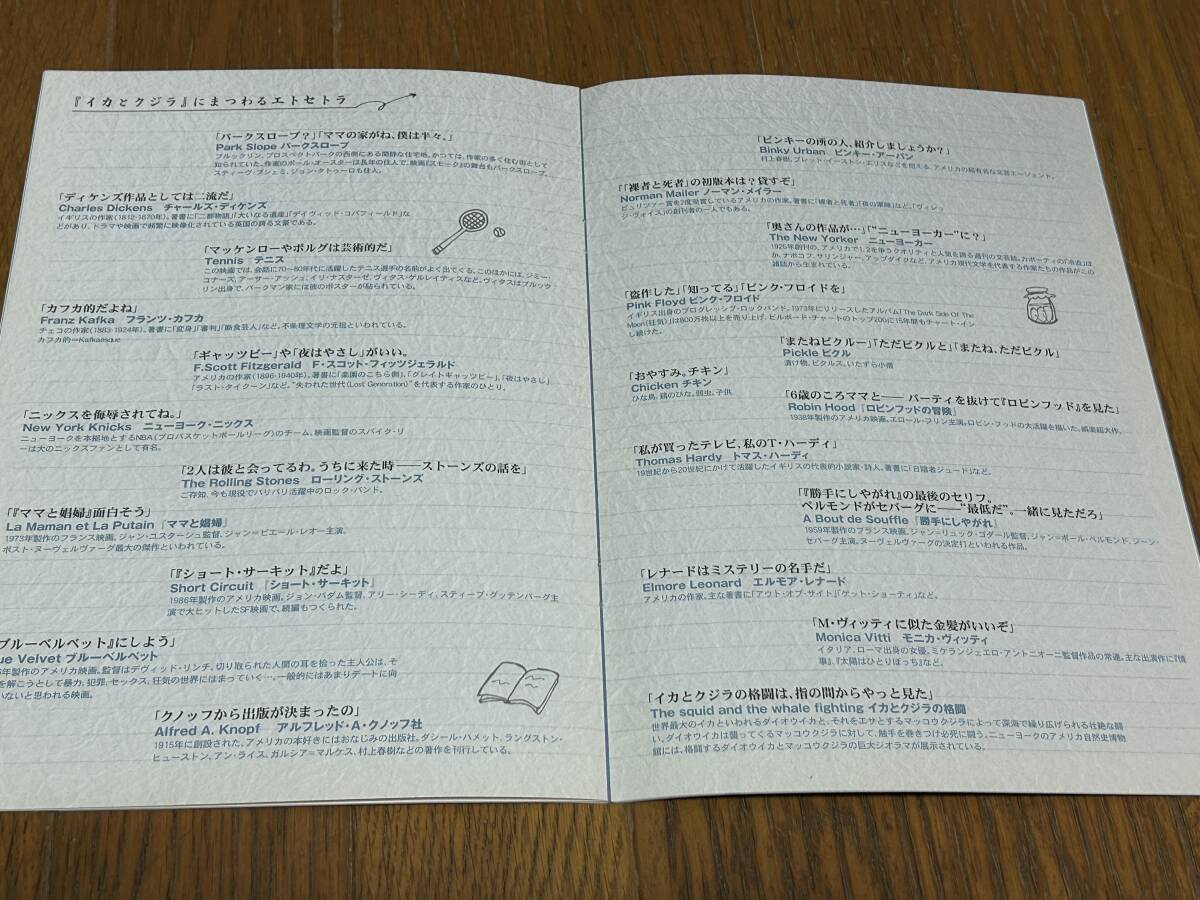 『イカとクジラ』にまつわるエトセトラ
「パークスロープ？」「ママの家がね、僕は半々。」
Park Slope パークスロープ
ブルックリン、プロスペクトパークの西側にある閑静な住宅地。かつては、作家の多く住む街として
知られていた。作家のポール・オースターは長年の住人で、映画『スモーク』の舞台もパークスロープ。
スティーヴ・ブシェミ、ジョン・タトゥーロも住人。
「ディケンズ作品としては二流だ」
Charles Dickens チャールズ・ディケンズ
イギリスの作家（1812-1870年）。著書に「二都物語」「大いなる遺産」「デイヴィッド・コパフィールド」な
どがあり、ドラマや映画で頻繁に映像化されている英国の誇る文豪である。
「マッケンローやボルグは芸術的だ」
Tennis テニス
この映画では、会話に70〜80年代に活躍したテニス選手の名前がよく出てくる。このほかには、ジミー・
コナーズ、アーサー・アッシュ、イリ・ナスターゼ、ヴィタス・ゲルレイティスなど。ヴィタスはブルック
リン出身で、バークマン家には彼のポスターが貼られている。
「カフカ的だよね」
Franz Kafka フランツ・カフカ
チェコの作家（1883-1924年）。著書に「変身」「審判」「断食芸人」など。不条理文学の元祖といわれている。
カフカ的＝Kafkaesque
「ギャッツビー」や「夜はやさし」がいい。
F.Scott Fitzgerald F・スコット・フィッツジェラルド
アメリカの作家（1896-1940年）。著書に「楽園のこちら側」、「グレイトギャッツビー」、「夜はやさし」
「ラスト・タイクーン」など。“失われた世代（Lost Generation）”を代表する作家のひとり。
「ニックスを侮辱されてね。」
New York Knicks ニューヨーク・ニックス
ニューヨークを本拠地とするNBA（プロバスケットボールリーグ）のチーム。映画監督のスパイク・リ
ーは大のニックスファンとして有名。
「2人は彼と会ってるわ。うちに来た時――ストーンズの話を」
The Rolling Stones ローリング・ストーンズ
ご存知、今も現役でバリバリ活躍中のロック・バンド。
「『ママと娼婦』面白そう」
La Maman et La Putain 『ママと娼婦』
1973年製作のフランス映画。ジャン・ユスターシュ監督、ジャン＝ピエール・レオー主演。
ポスト・ヌーヴェルヴァーグ最大の傑作といわれている。
「『ショート・サーキット』だよ」
Short Circuit 『ショート・サーキット』
1986年製作のアメリカ映画。ジョン・バダム監督、アリー・シーディ、スティーブ・グッテンバーグ主
演で大ヒットしたSF映画で、続編もつくられた。
ブルーベルベット』にしよう」
ue Velvet ブルーベルベット
6年製作のアメリカ映画。監督はデヴィッド・リンチ。切り取られた人間の耳を拾った主人公は、そ
を解こうとして暴力、犯罪、セックス、狂気の世界にはまっていく…。一般的にはあまりデートに向
いないと思われる映画。
「クノッフから出版が決まったの」
Alfred A. Knopf アルフレッド・A・クノッフ社
1915年に創設された、アメリカの本好きにはおなじみの出版社。ダシール・ハメット、ラングストン・
ヒューストン、アン・ライス、ガルシア＝マルケス、村上春樹などの著作を刊行している。
「ビンキーの所の人、紹介しましょうか？」
Binky Urban ビンキー・アーバン
村上春樹、ブレット・イーストン・エリスなどを抱える、アメリカの超有名な文芸エージェント。
「『裸者と死者』の初版本は？貸すぞ」
Norman Mailer ノーマン・メイラー
ピュリツァー賞を2度受賞しているアメリカの作家。著書に「裸者と死者」「夜の軍隊」など。「ヴィレッ
ジ・ヴォイス」の創刊者の一人でもある。
「奥さんの作品が…」「“ニューヨーカー”に？」
The New Yorker ニューヨーカー
1925年創刊の、アメリカで1、2を争うクオリティと人気を誇る週刊の文芸誌。カポーティの「冷血」ほ
か、ナボコフ、サリンジャー、アップダイクなど、アメリカ現代文学を代表する作家たちの作品がこの
雑誌から生まれている。
「盗作した」「知ってる」「ピンク・フロイドを」
Pink Floyd ピンク・フロイド
イギリス出身のプログレッシブ・ロックバンド。1973年にリリースしたアルバム「The Dark Side Of The
Moon（狂気）」は800万枚以上を売り上げ、ビルボード・チャートのトップ200に15年間もチャート・イン
し続けた。
「またねピクルー」「ただピクルと」「またね、ただピクル」
Pickle ピクル
漬け物、ピクルス、いたずら小僧
「おやすみ。チキン」
Chicken チキン
ひな鳥、鶏のひな、弱虫、子供
「6歳のころママと―― パーティを抜けて『ロビンフッド』を見た」
Robin Hood 『ロビンフッドの冒険』
1938年製作のアメリカ映画。エロール・フリン主演。ロビン・フッドの大活躍を描いた、娯楽超大作。
「私が買ったテレビ、私のT・ハーディ」
Thomas Hardy トマス・ハーディ
19世紀から20世紀にかけて活躍したイギリスの代表的小説家・詩人。著書に「日陰者ジュード」など。
「『勝手にしやがれ』の最後のセリフ。
ベルモンドがセバーグに――“最低だ”。一緒に見ただろ」
A Bout de Souffle 『勝手にしやがれ』
1959年製作のフランス映画。ジャン＝リュック・ゴダール監督、ジャン＝ポール・ベルモンド、ジーン・
セバーグ主演。ヌーヴェルヴァーグの決定打といわれる作品。
「レナードはミステリーの名手だ」
Elmore Leonard エルモア・レナード
アメリカの作家。主な著書に「アウト・オブ・サイト」「ゲット・ショーティ」など。
「M・ヴィッティに似た金髪がいいぞ」
Monica Vitti モニカ・ヴィッティ
イタリア、ローマ出身の女優。ミケランジェロ・アントニオーニ監督作品の常連。主な出演作に『情
事』、『太陽はひとりぼっち』など。
「イカとクジラの格闘は、指の間からやっと見た」
The squid and the whale fighting イカとクジラの格闘
世界最大のイカといわれるダイオウイカと、それをエサとするマッコウクジラによって深海で繰り広げられる壮絶な闘
い。ダイオウイカは襲ってくるマッコウクジラに対して、触手を巻きつけ必死に闘う。ニューヨークのアメリカ自然史博物
館には、格闘するダイオウイカとマッコウクジラの巨大ジオラマが展示されている。